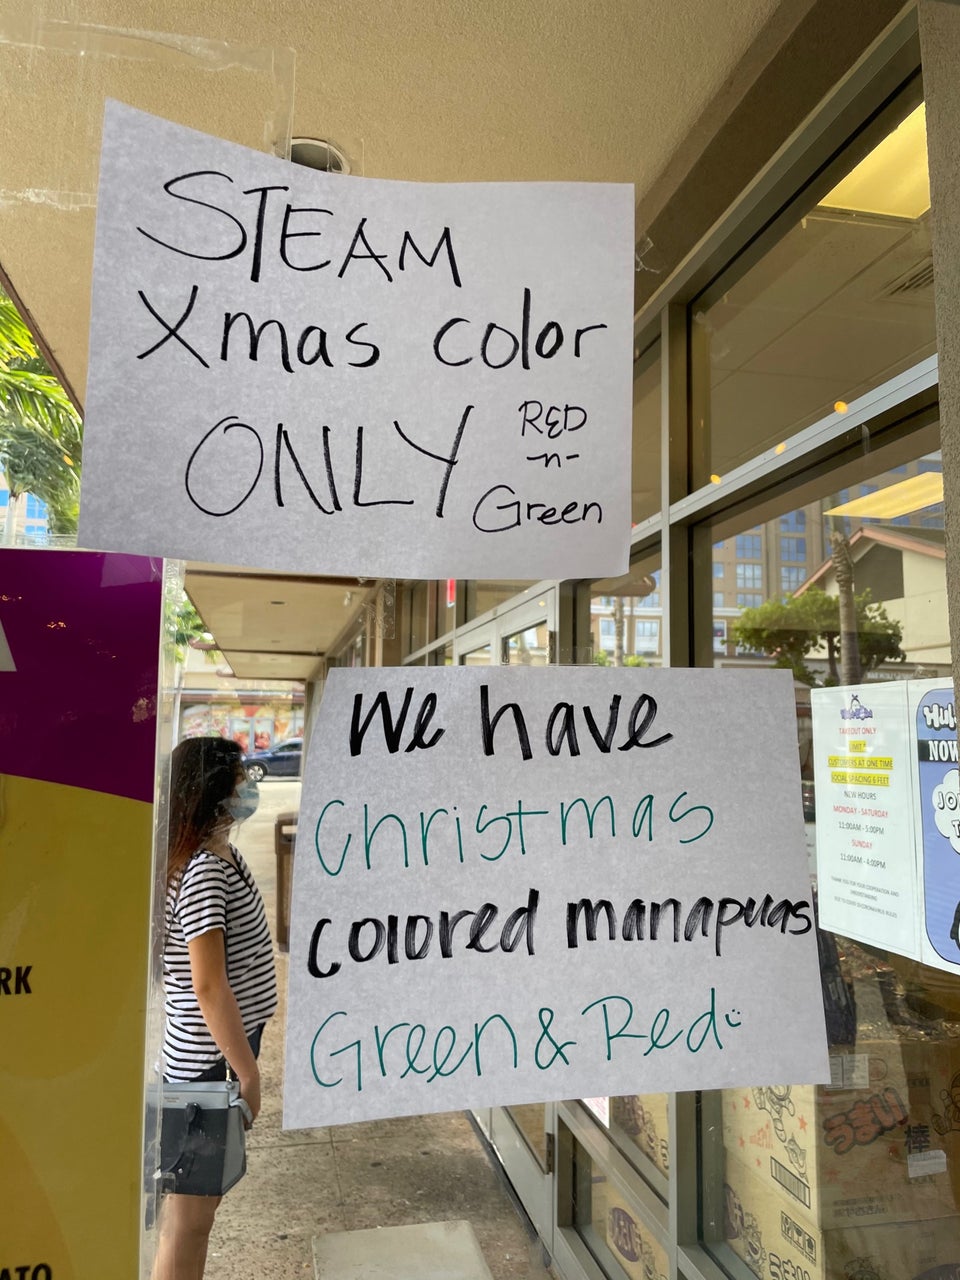 STEAM
Xmas color
ONLY
RED
-n-
Green
We have
Christmas
colored manapuas
Green & Red
TAKEOUT ONLY
CUSTOMERS AT ONE TIME
SOCIAL SPACING 6 FEET
NEW HOURS
MONDAY - SATURDAY
11:00AM - 5:00PM
SUNDAY
11:00AM - 4:00PM
NOW
RK
ATO
うまい
棒
うまい